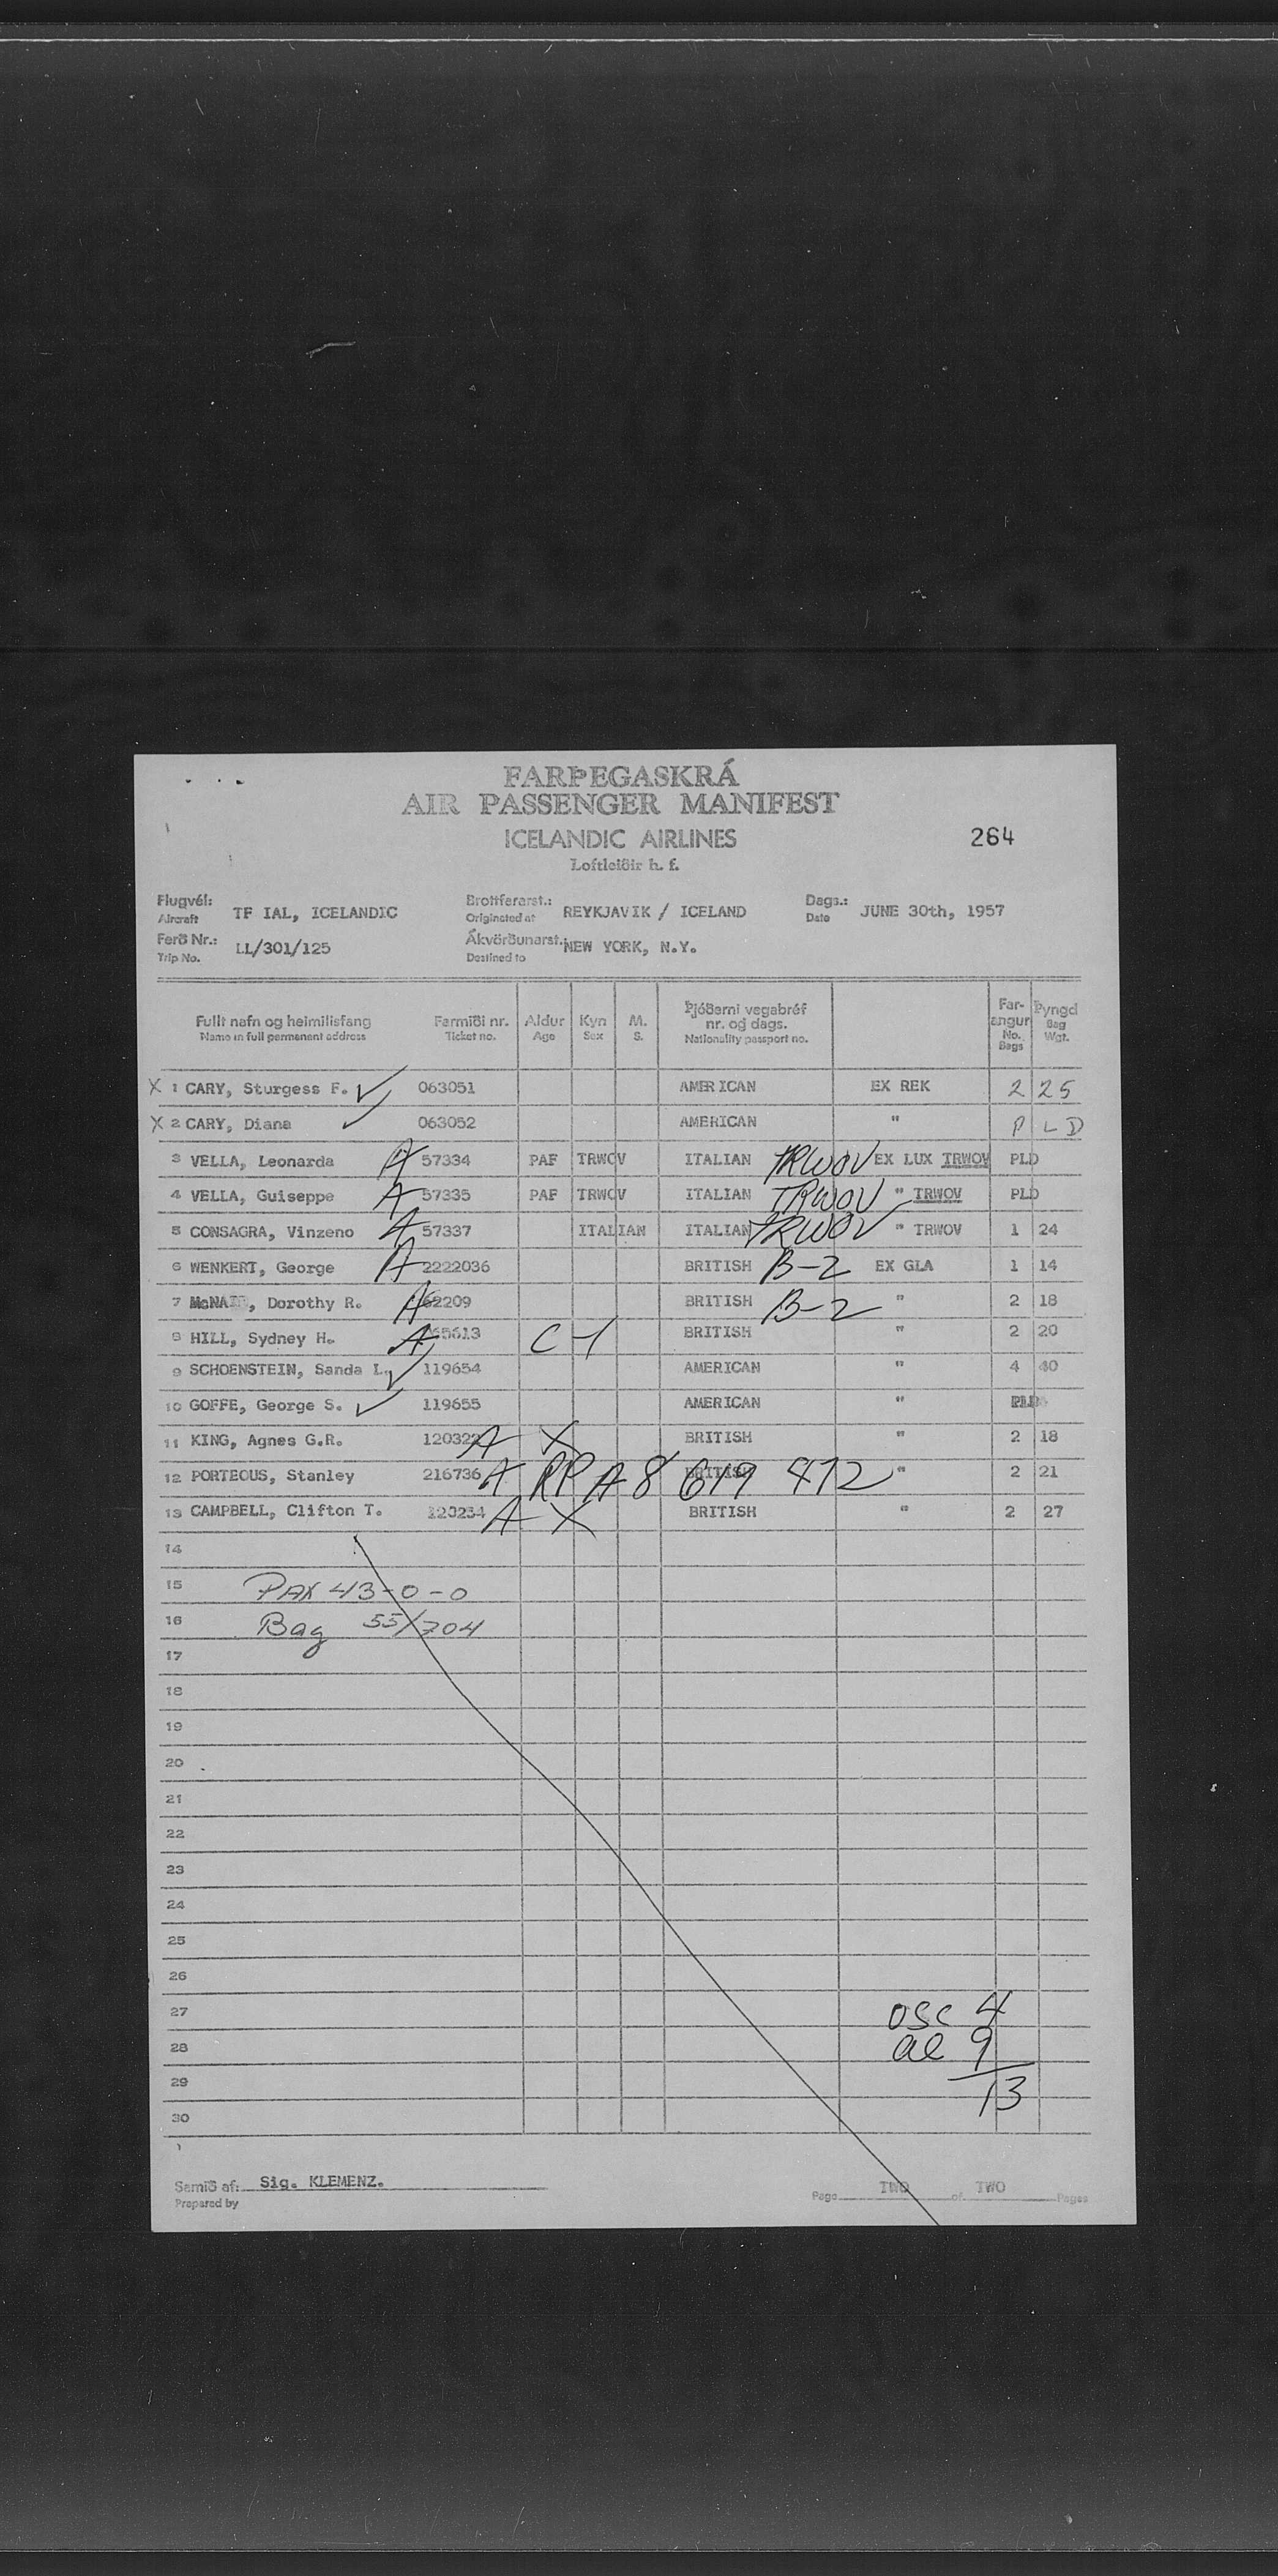 FARÞEGASKRÁ
AIR PASSENGER MANIFEST
ICELANDIC AIRLINES
264
Loftleiðir h. f.
Flugvél: Aircraft TF IAL, ICELANDIC Brottfararst.: Originated at REYKJAVIK / ICELAND Dags.: Date JUNE 30th, 1957
Ferð Nr.: Trip No. LL/301/125 Ákvörðunarst.: Destined to NEW YORK, N.Y.
Fullt nafn og heimilisfang Farmiði nr. Aldur Kyn M. Þjóðerni vegabréf nr. og dags. Farangur Þyngd
Name in full permanent address Ticket no. Age Sex S. Nationality passport no. No. Bags Bag Wgt.
X 1 CARY, Sturgess F. ✓ 063051 AMERICAN EX REK 2 25
X 2 CARY, Diana ✓ 063052 AMERICAN " P L D
3 VELLA, Leonarda A 57334 PAF TRWOV ITALIAN TRWOV EX LUX TRWOV PLD
4 VELLA, Guiseppe A 57335 PAF TRWOV ITALIAN TRWOV " TRWOV PLD
5 CONSAGRA, Vinzeno A 57337 ITALIAN ITALIAN TRWOV " TRWOV 1 24
6 WENKERT, George A 2222036 BRITISH B-2 EX GLA 1 14
7 McNAIR, Dorothy R. A 62209 BRITISH B-2 " 2 18
8 HILL, Sydney H. A BRITISH " 2 20
9 SCHOENSTEIN, Sanda L. ✓ 119654 AMERICAN " 4 40
10 GOFFE, George S. ✓ 119655 AMERICAN " PLD
11 KING, Agnes G.R. 120322 A X BRITISH " 2 18
12 PORTEOUS, Stanley 216736 A RP A8 619 472 BRITISH " 2 21
13 CAMPBELL, Clifton T. 120234 A X BRITISH " 2 27
14
15 PAX 43-0-0
16 Bag 55/704
17
18
19
20
21
22
23
24
25
26
27 USC 4
28 al 9
29 13
30
Samið af: Sig. KLEMENZ.
Prepared by
Page TWO of TWO Pages